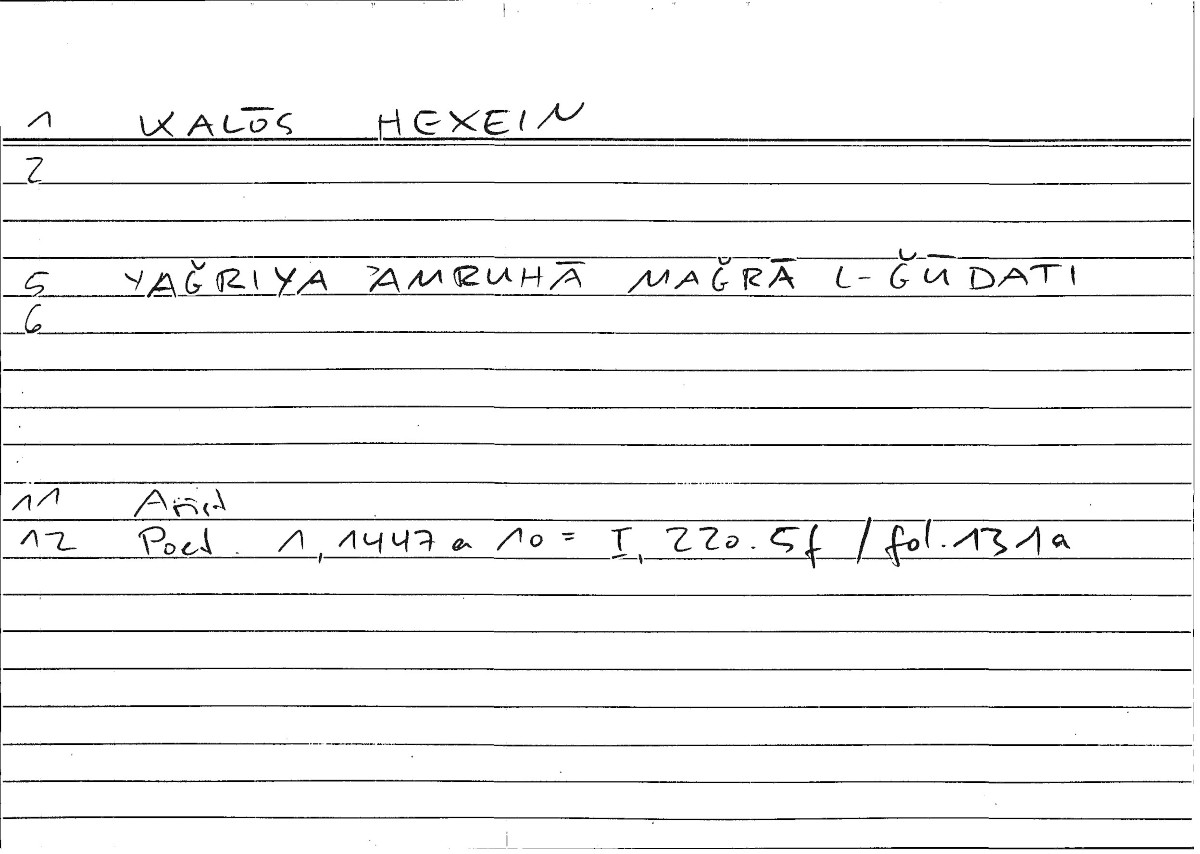 1 KALŌS HEXEIN
2
5 YAǦRIYA ʾAMRUHĀ MAǦRĀ L-ǦŪDATI
6
11
12 Poet. 1, 1447 a 10 = I, 220.5f / fol. 131a